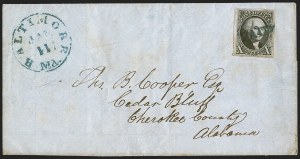 BALTIMORE Md.
11
Ths. B. Cooper Esq
Cedar Bluff
Cherokee County
Alabama